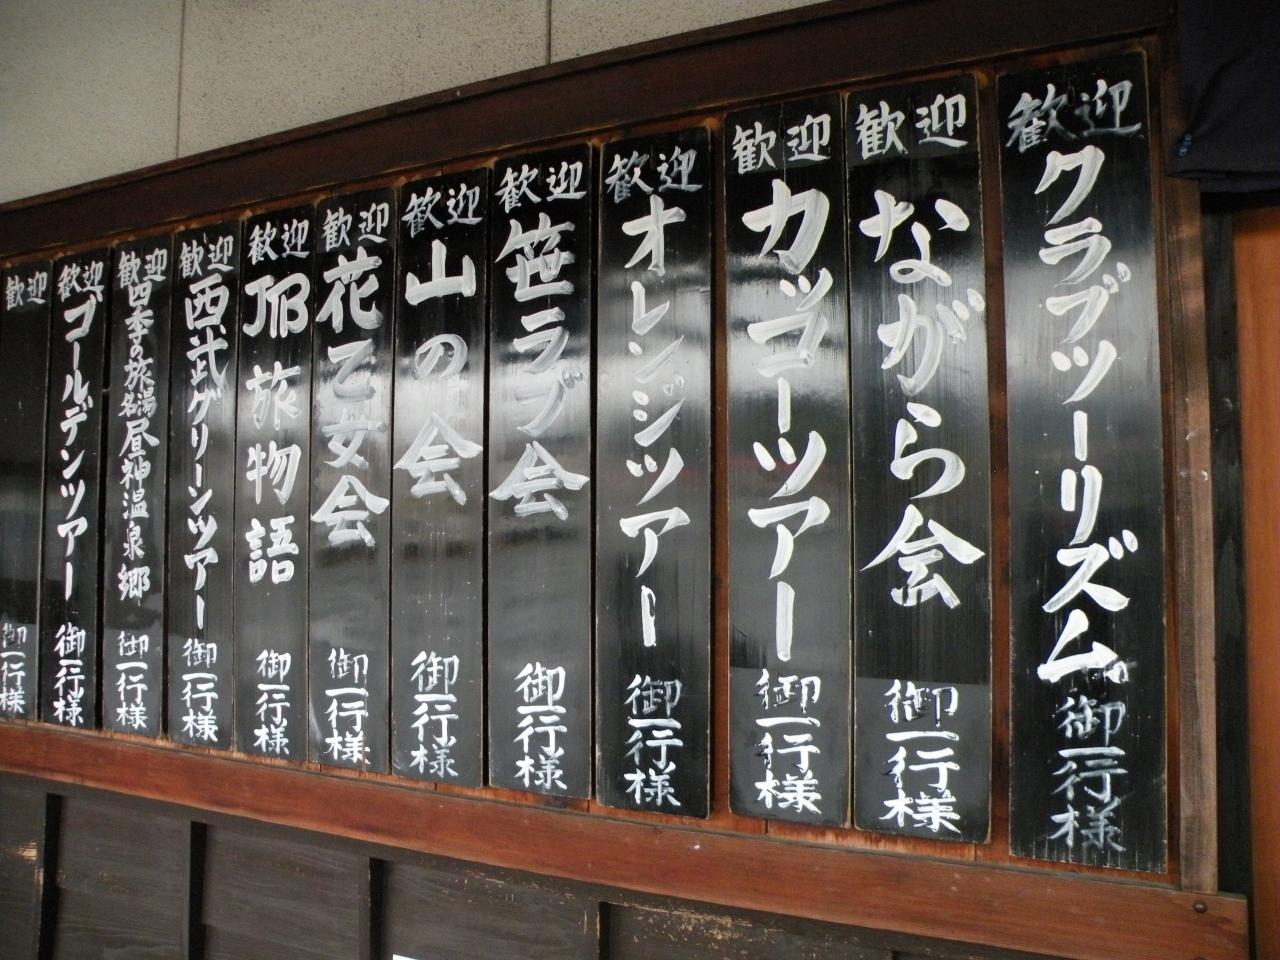 歓迎 クラブツーリズム 御一行様
歓迎 ながら会 御一行様
歓迎 カッコーツアー 御一行様
歓迎 オレンジツアー 御一行様
歓迎 笹ラブ会 御一行様
歓迎 山の会 御一行様
歓迎 花乙女会 御一行様
歓迎 JTB旅物語 御一行様
歓迎 西武グリーンツアー 御一行様
歓迎 四季の旅 名湯 昼神温泉郷 御一行様
歓迎 ゴールデンツアー 御一行様
歓迎 御一行様